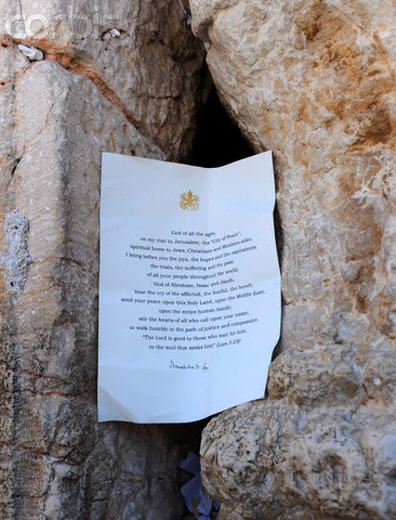 corbis
God of all the ages,
on my visit to Jerusalem, the "City of Peace",
spiritual home to Jews, Christians and Muslims alike,
I bring before you the joys, the hopes and the aspirations,
the trials, the suffering and the pain
of all your people throughout the world.
God of Abraham, Isaac and Jacob,
hear the cry of the afflicted, the fearful, the bereft;
send your peace upon this Holy Land, upon the Middle East,
upon the entire human family;
stir the hearts of all who call upon your name,
to walk humbly in the path of justice and compassion.
"The Lord is good to those who wait for him,
to the soul that seeks him" (Lam 3:25)!